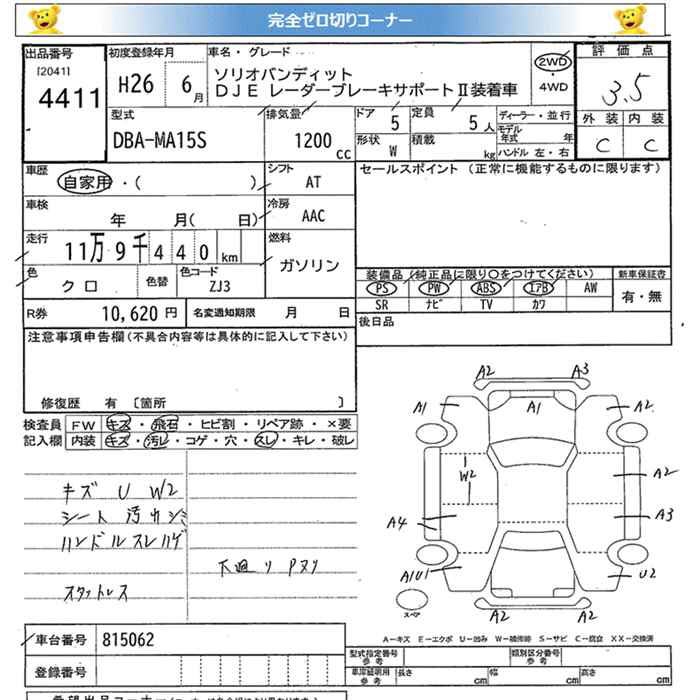 完全ゼロ切りコーナー
出品番号 初度登録年月 車名・グレード 評価点
[2041]
4411 H26 6月 ソリオバンディット 2WD
DJE レーダーブレーキサポートⅡ装着車 ・4WD 3.5
型式 排気量 ドア 5 定員 5人 ディーラー・並行 外装 内装
DBA-MA15S 1200cc 形状 W 積載 kg モデル年式 年 C C
ハンドル 左・右
車歴 シフト セールスポイント(正常に機能するものに限ります)
自家用・( ) AT
車検 冷房
年 月( 日) AAC
走行 燃料
11万9千440km ガソリン
色 色替 色コード 装備品(純正品に限り○をつけてください) 新車保証書
クロ ZJ3 PS PW ABS エアB AW 有・無
SR ナビ TV カワ
R券 10,620円 名変通知期限 月 日 後日品
注意事項申告欄(不具合内容等は具体的に記入して下さい)
修復歴 有 〔箇所 〕
検査員 FW キズ・飛石・ヒビ割・リペア跡・×要
記入欄 内装 キズ・汚レ・コゲ・穴・スレ・キレ・破レ
キズ U W2
シート 汚れシミ
ハンドルスレハゲ
下廻り Pヌリ
スタットレス
A2 A3
A1 A1 A2
W2 A2
A4 A3
A1U1 U2
スペア A2 A2
A-キズ E-エクボ U-凹み W-補修跡 S-サビ C-腐食 XX-交換済
車台番号 815062
型式指定番号 参考 類別区分番号 参考
登録番号 車庫証明用 参考 長さ cm 幅 cm 高さ cm